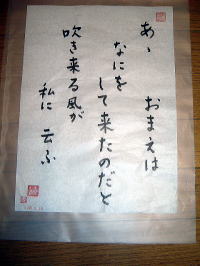 あゝ おまえは
なにを
して来たのだと
吹き来る風が
私に 云ふ